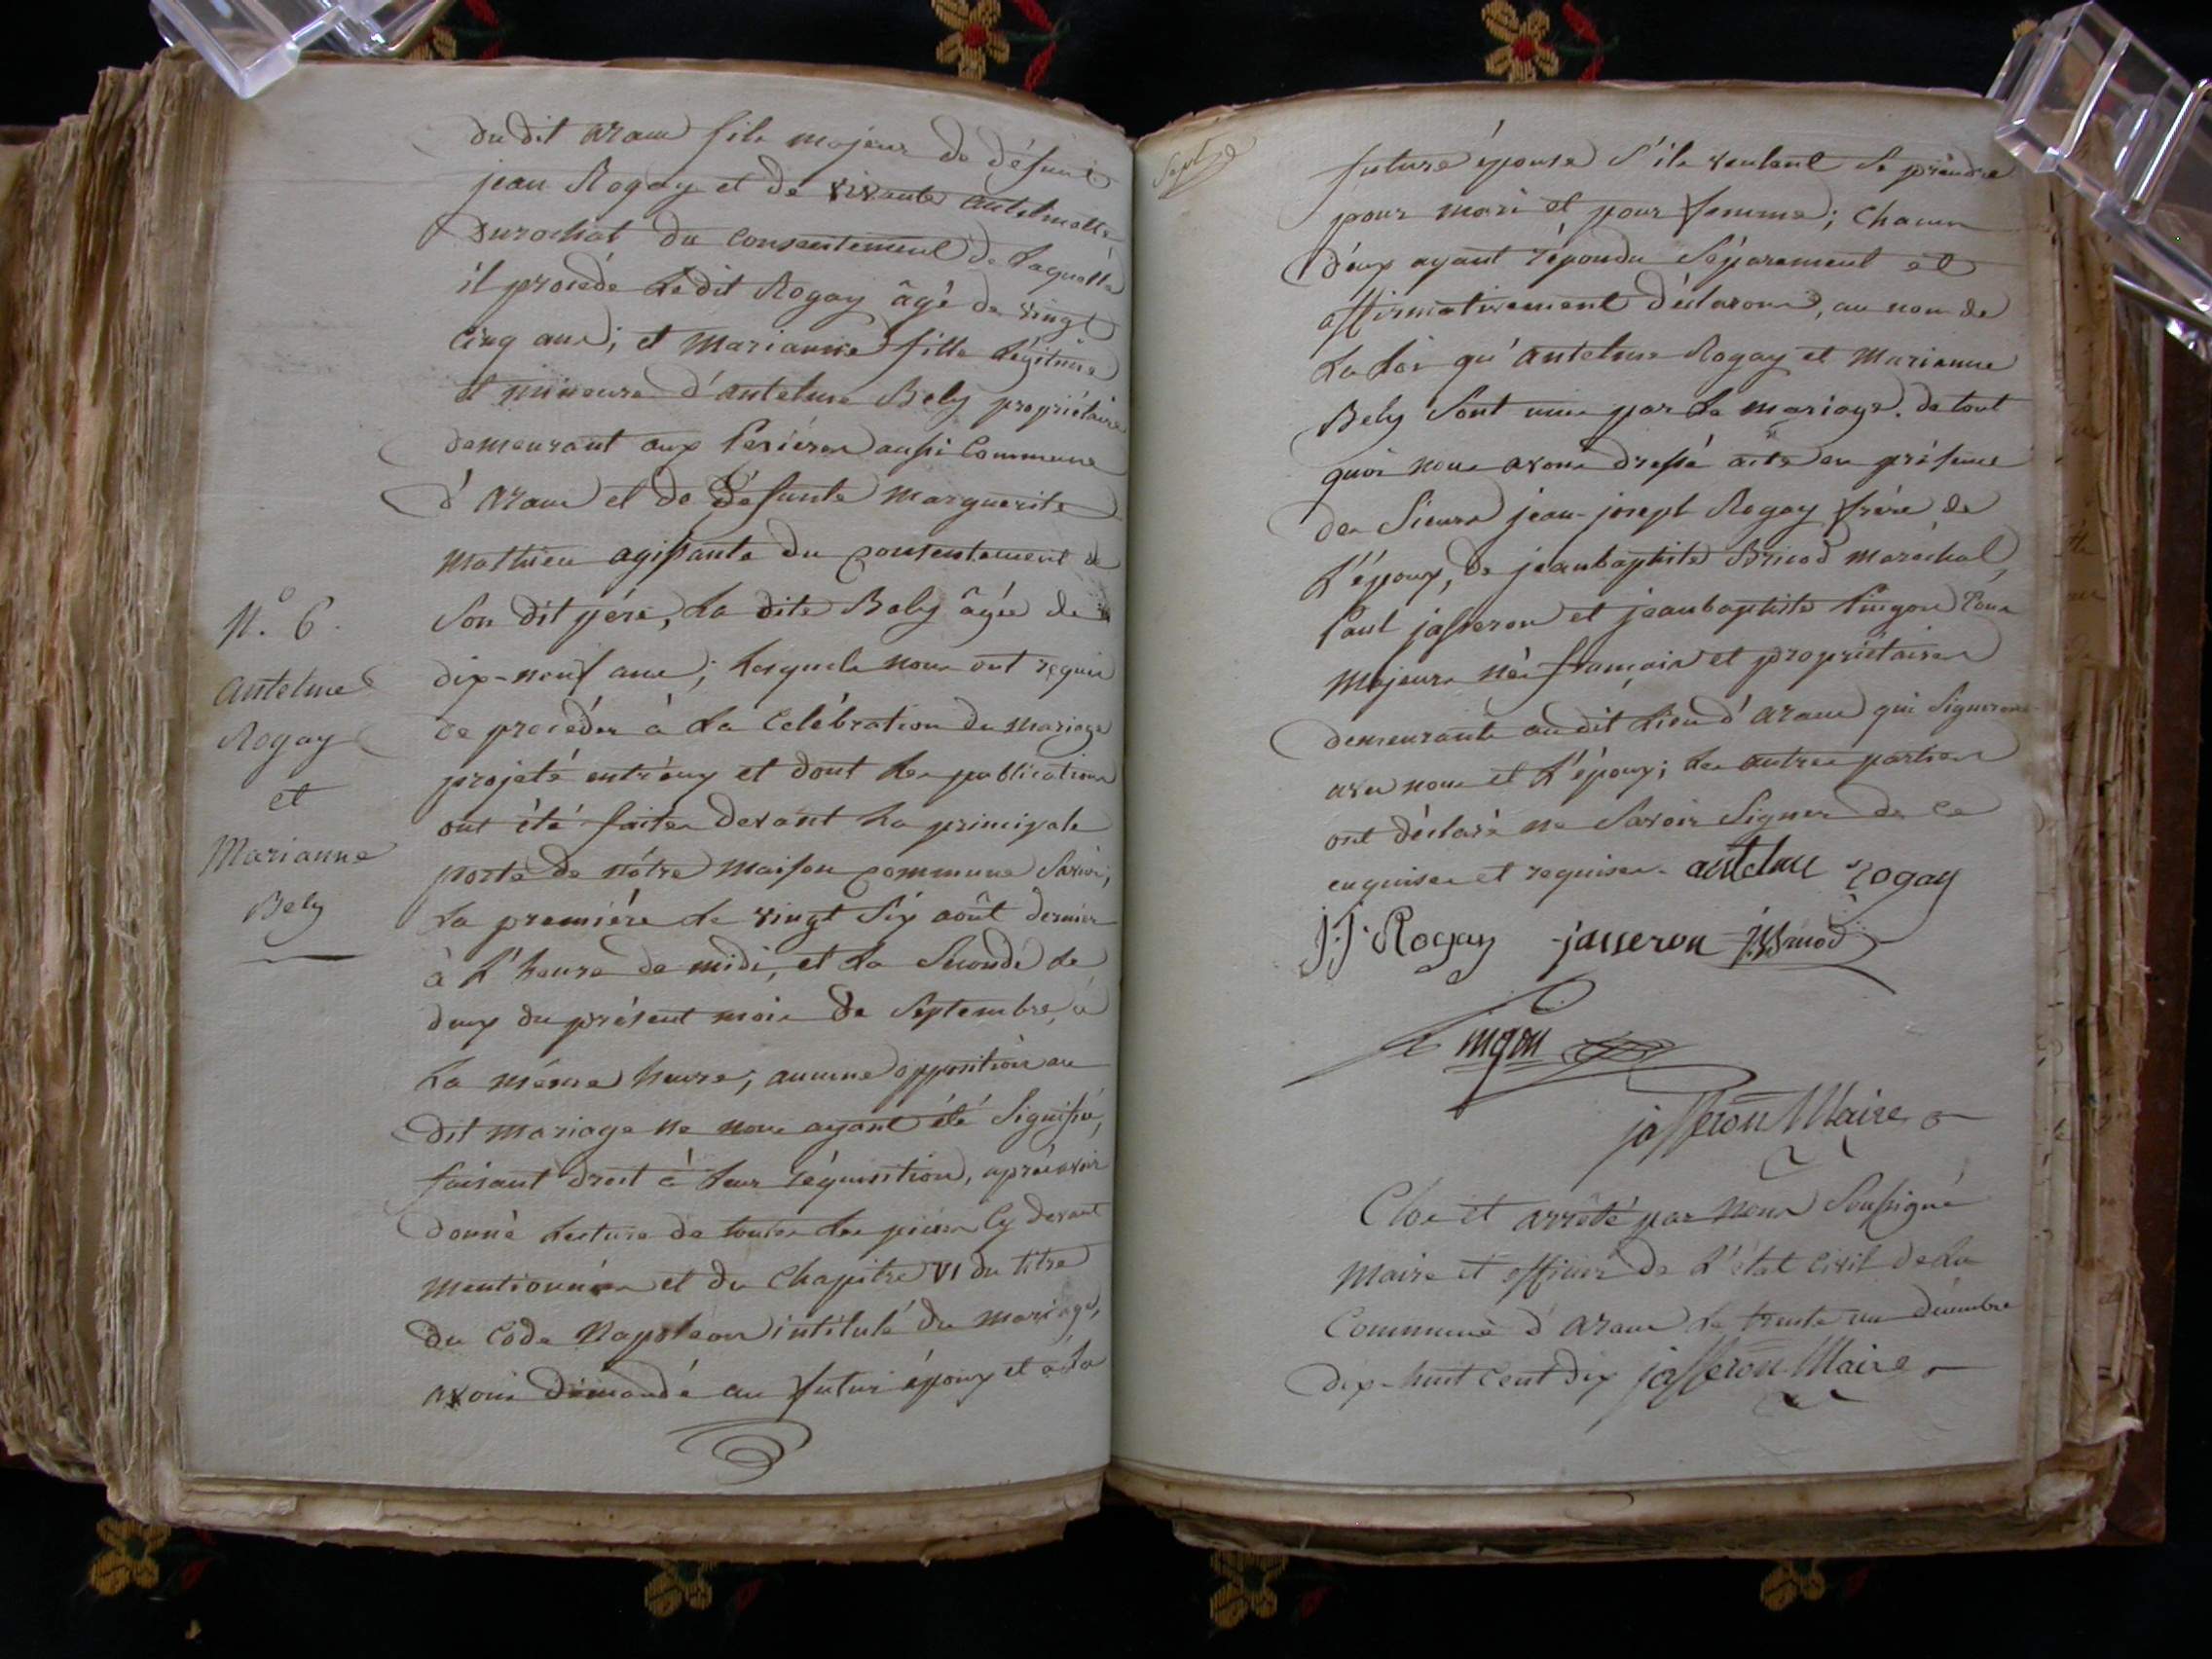 du dit aranc fils majeur de défunt
jean Rogay et de vivante antelmette
durochat du consentement de laquelle
il procède le dit Rogay âgé de vingt
cinq ans; et Marianne fille légitime
et mineure d'antelme Bely propriétaire
demeurant aux aussi Commune
d'aranc et de défunte Marguerite
Mathieu agissante du consentement de
son dit père, la dite Bely âgée de
dix-neuf ans; lesquels nous ont requis
de procéder à la Celébration du mariage
projeté entr'eux et dont les publications
ont été faites devant la principale
porte de nôtre maison commune savoir,
la première le vingt six août dernier
à l'heure de midi, et la seconde le
deux du présent mois de septembre, à
la même heure; aucune opposition au
dit mariage ne nous ayant été signifié,
faisant droit à leur réquisition, après avoir
donné lecture de toutes les pièces Cy devant
mentionnées et du Chapitre VI du titre
du Code Napoléon intitulé du mariage,
avons demandé au futur époux et à la
N.° 6.
antelme
Rogay
et
Marianne
Bely
future épouse s'ils veulent se prendre
pour mari et pour femme; Chacun
d'eux ayant répondu séparement et
affirmativement déclarons, au nom de
la loi qu'antelme Rogay et Marianne
Bely sont unis par le mariage. de tout
quoi nous avons dressé acte en présence
des sieurs jean-joseph Rogay frère de
l'époux, de jeanbaptiste maréchal,
Paul jasseron et jeanbaptiste Pingon tous
majeurs nés français et propriétaires
demeurants audit lieu d'aranc qui signerons
avec nous et l'époux; les autres parties
ont déclaré ne savoir signer de ce
enquises et requises. antelme rogay
J.J. Rogay jasseron
Pingon
jasseron Maire
Clos et arrêté par nous soussigné
Maire et officier de l'état civil de la
Commune d'aranc le trente un décembre
dix-huit cent dix jasseron Maire